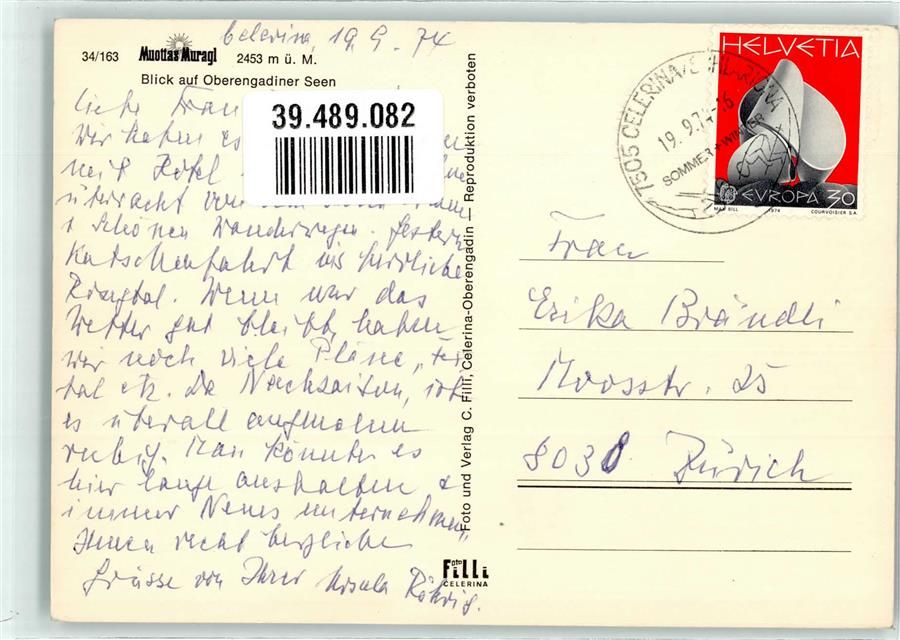 Celerina, 19.9.74
34/163 Muottas Muragl 2453 m ü. M.
Blick auf Oberengadiner Seen
39.489.082
Liebe Frau
Wir haben es
mit Hotel
überrascht von
+ schönen Wanderwegen. Gestern
Kutschenfahrt ins herrliche
Rosegtal. Wenn nur das
Wetter gut bleibt, haben
wir noch viele Pläne, Fex-
tal etc. Da Nachsaison, ist
es überall angenehm
ruhig. Man könnte es
hier lange aushalten &
immer Neues unternehmen,
Ihnen recht herzliche
Grüsse von Ihrer Ursula Röhrig.
Foto und Verlag C. Filli, Celerina-Oberengadin — Reproduktion verboten
Foto Filli
CELERINA
7505 CELERINA/SCHLARIGNA
19.9.74-16
SOMMER + WINTER
HELVETIA
EUROPA 30
MAX BILL 1974 COURVOISIER S.A.
Frau
Erika Brändli
Moosstr. 25
8038 Zürich